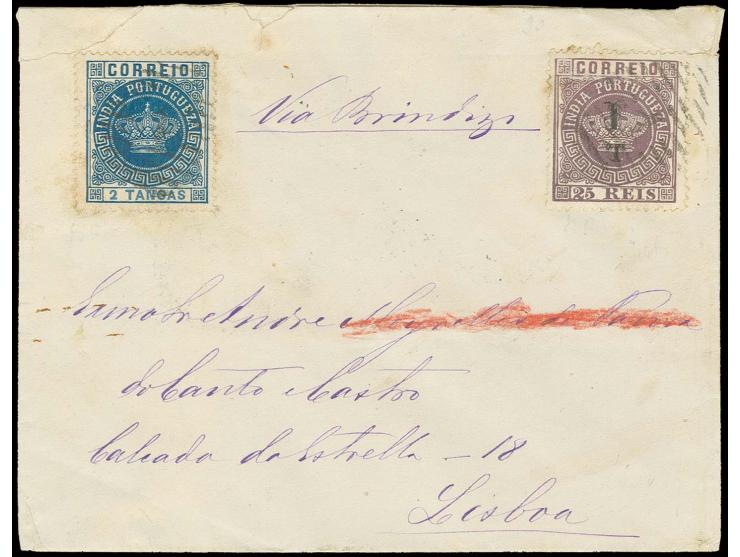 CORREIO
INDIA PORTUGUEZA
2 TANGAS
Via Brindizi
CORREIO
INDIA PORTUGUEZA
1
T
25 REIS
Exmo Sr Andre
do Canto e Castro
Calçada da Estrella - 18
Lisboa